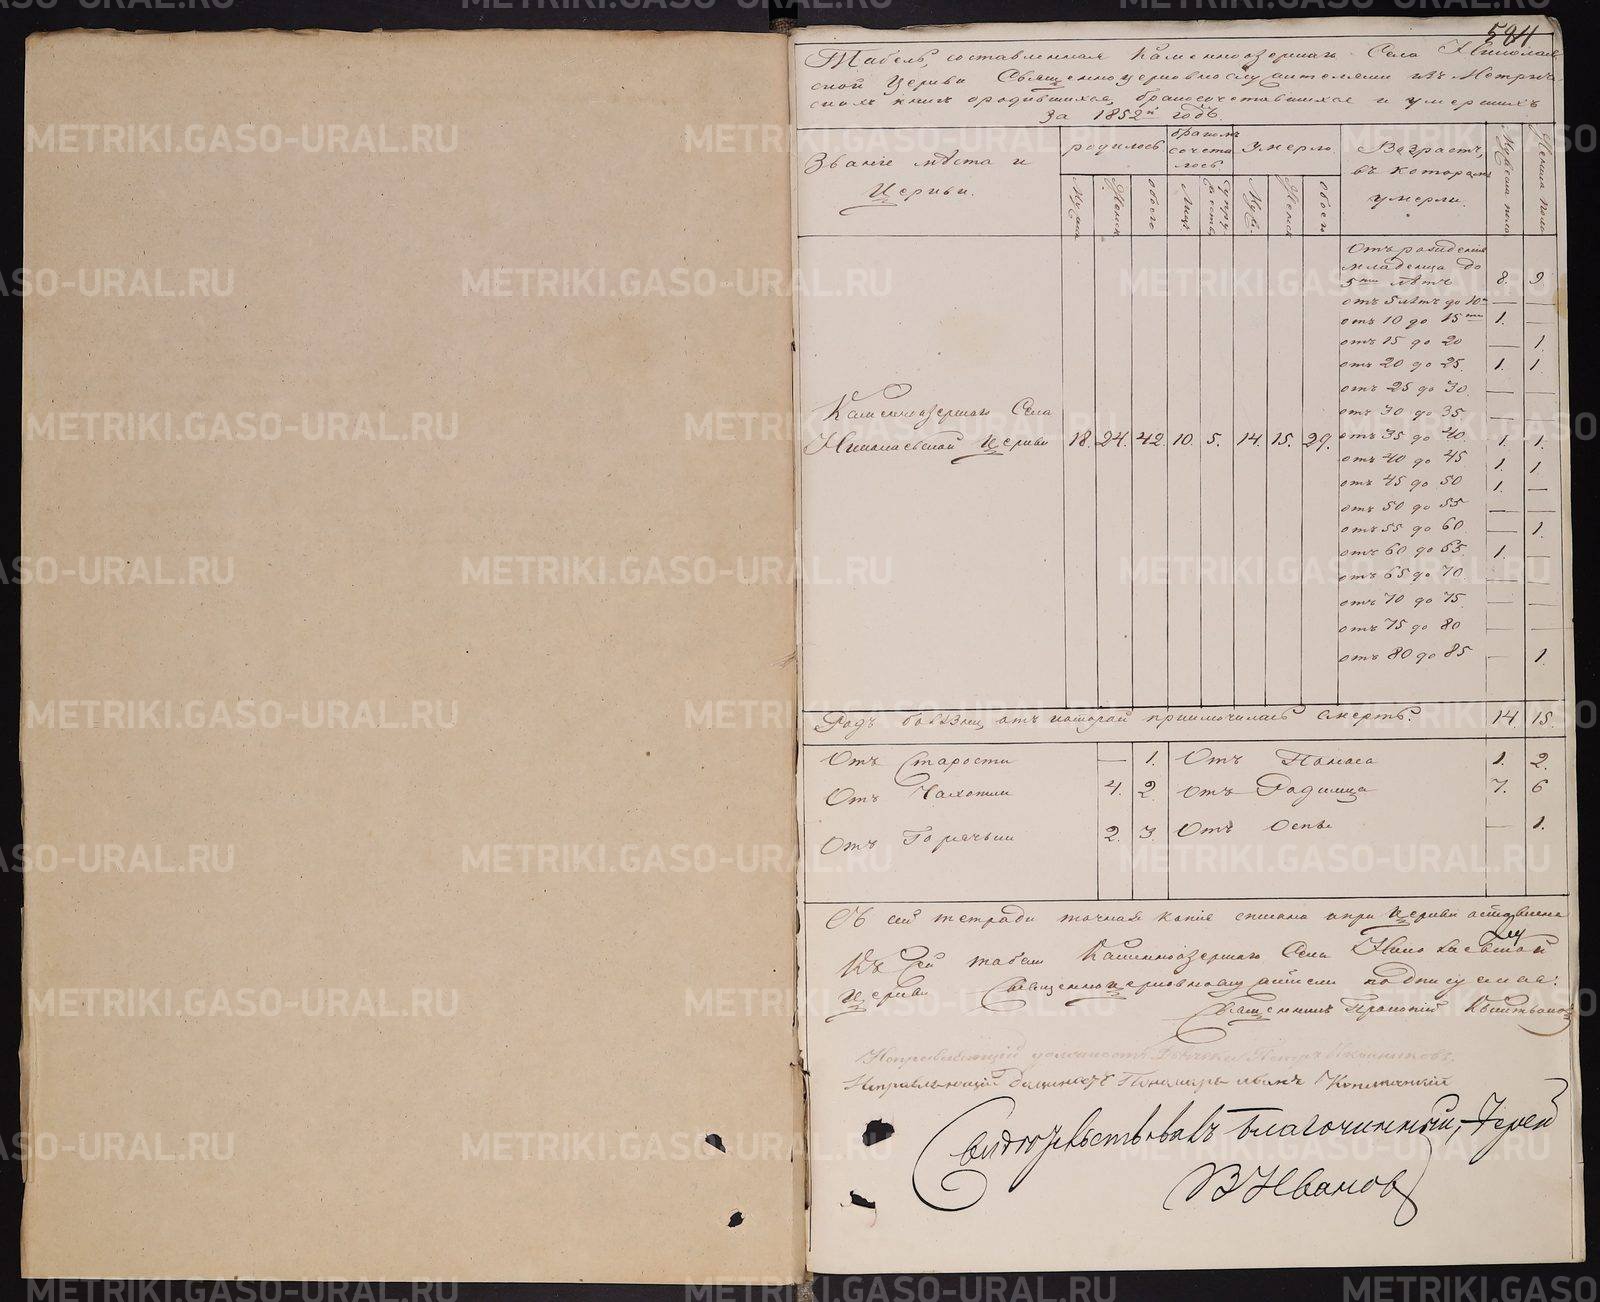 584
Табель, составленная Каменноозерскаго Села Николаев
ской Церкви Священноцерковнослужителями изъ Метриче
скихъ книгъ о родившихся, бракосочетавшихся и умершихъ
За 1852й годъ.
Званіе мѣста и Церкви.
родилось
бракомъ сочеталось
умерло
Возрастъ, въ которомъ умерли.
Мужеска полу
Женска полу
Мужск
Женск
обоего
Лицъ
Супружествъ
Муж.
Женск
обоего
Отъ рожденія
младенца до
5ти лѣтъ 8. 9
отъ 5 лѣтъ до 10и — —
отъ 10 до 15ти 1. —
отъ 15 до 20 — 1.
отъ 20 до 25 1. 1.
отъ 25 до 30 — —
отъ 30 до 35 — —
отъ 35 до 40 1. 1.
отъ 40 до 45 1. 1.
отъ 45 до 50 1. —
отъ 50 до 55 — —
отъ 55 до 60 — 1.
отъ 60 до 65 1. —
отъ 65 до 70 — —
отъ 70 до 75 — —
отъ 75 до 80 — —
отъ 80 до 85 — 1.
Каменноозерскаго Села
Николаевской Церкви 18. 24. 42. 10. 5. 14. 15. 29.
Родъ болѣзни, отъ которой приключилась смерть. 14. 15.
Отъ Старости — 1. Отъ Поноса 1. 2.
Отъ Чахотки 4. 2 отъ Родимца 7. 6
Отъ Горячки 2. 3. Отъ Оспы — 1.
Съ сей тетради точная копія списана и при Церкви оставлена
Къ сей табели Каменноозерскаго Села Николаевской
Церкви Священноцерковнослужители подписуемся:
Священникъ Прокопій
Исправляющій должность Дьячка Петръ Иконниковъ.
Исправляющій должность Пономаря Иванъ
Свидѣтельствовалъ Благочинный, Іерей
В Ивановъ
METRIKI.GASO-URAL.RU